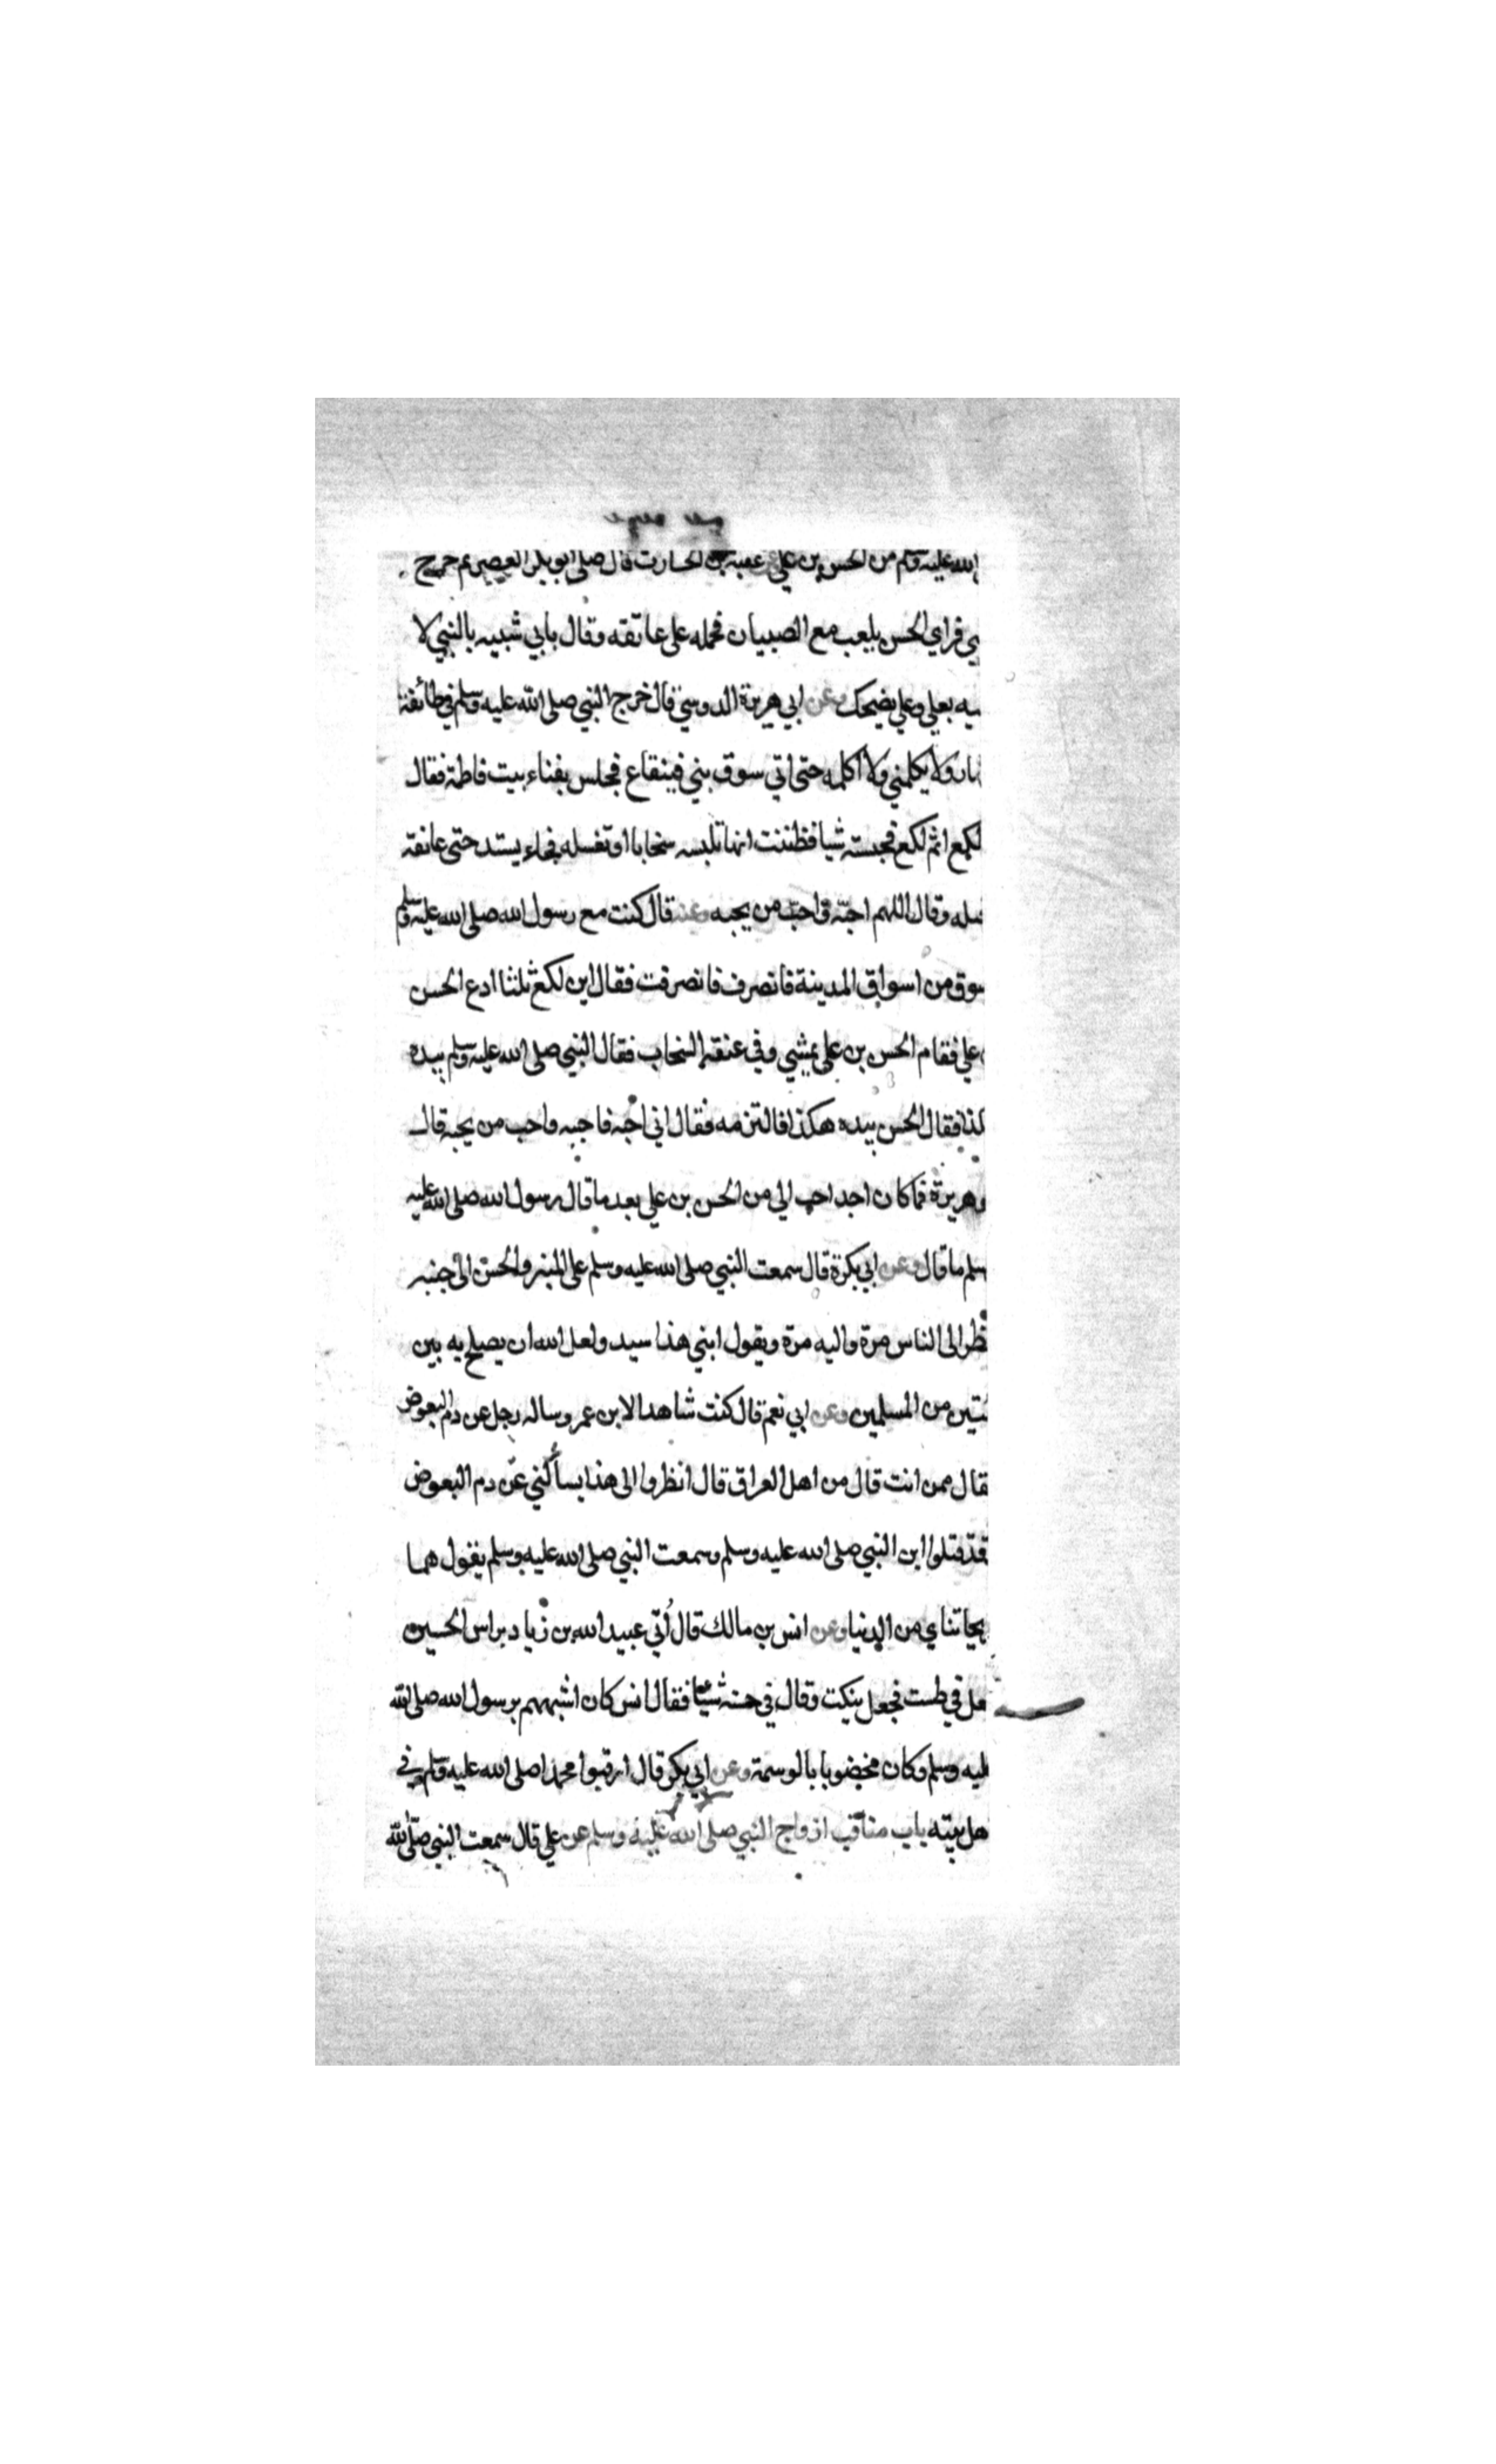 الله عليه وسلم من الحسن بن علي عن عقبة بن الحارث قال صلى ابو بكر العصر ثم خرج
فراي الحسن يلعب مع الصبيان فحمله على عاتقه وقال بابي شبيه بالنبي لا
بعلي وعلي يضحك وعن ابي هريرة الدوسي قال خرج النبي صلى الله عليه وسلم في طائفة
ولا يكلمني ولا اكلمه حتى اتي سوق بني قينقاع فجلس بفناء بيت فاطمة فقال
لكع اثم لكع فحبسته شيا فظننت انها تلبسه سخابا او تغسله فجاء يشتد حتى عانقه
وقال اللهم احبه واحب من يحبه وعنه قال كنت مع رسول الله صلى الله عليه وسلم
سوق من اسواق المدينة فانصرف فانصرفت فقال اين لكع ثلثا ادع الحسن
علي فقام الحسن بن علي يمشي وفي عنقه السخاب فقال النبي صلى الله عليه وسلم بيده
فقال الحسن بيده هكذا فالتزمه فقال اني احبه فاحبه واحب من يحبه قال
هريرة فما كان احد احب الي من الحسن بن علي بعد ما قال رسول الله صلى الله عليه
سلم ما قال وعن ابي بكرة قال سمعت النبي صلى الله عليه وسلم على المنبر والحسن الى جنبه
الى الناس مرة واليه مرة ويقول ابني هذا سيد ولعل الله ان يصلح به بين
من المسلمين وعن ابي نعم قال كنت شاهدا لابن عمر وساله رجل عن دم البعوض
قال ممن انت قال من اهل العراق قال انظروا الى هذا يسألني عن دم البعوض
قد قتلوا ابن النبي صلى الله عليه وسلم وسمعت النبي صلى الله عليه وسلم يقول هما
من الدنيا وعن انس بن مالك قال أتي عبيد الله بن زياد براس الحسين
في طست فجعل ينكت وقال في حسنه شيئا فقال انس كان اشبههم برسول الله صلى الله
عليه وسلم وكان مخضوبا بالوسمة وعن ابي بكر قال ارقبوا محمدا صلى الله عليه وسلم في
هل بيته باب مناقب ازواج النبي صلى الله عليه وسلم عن علي قال سمعت النبي صلى الله